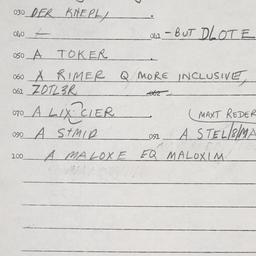 030 DER KNEPL,
040 — 041 - BUT DLOTE
050 A TOKER
060 A RIMER Q MORE INCLUSIVE,
061 ZOTL3R
070 A LIX CIER (MAXT REDER
090 A STMID 091 A STEL/8/MA
100 A MALOXE EQ MALOXIM